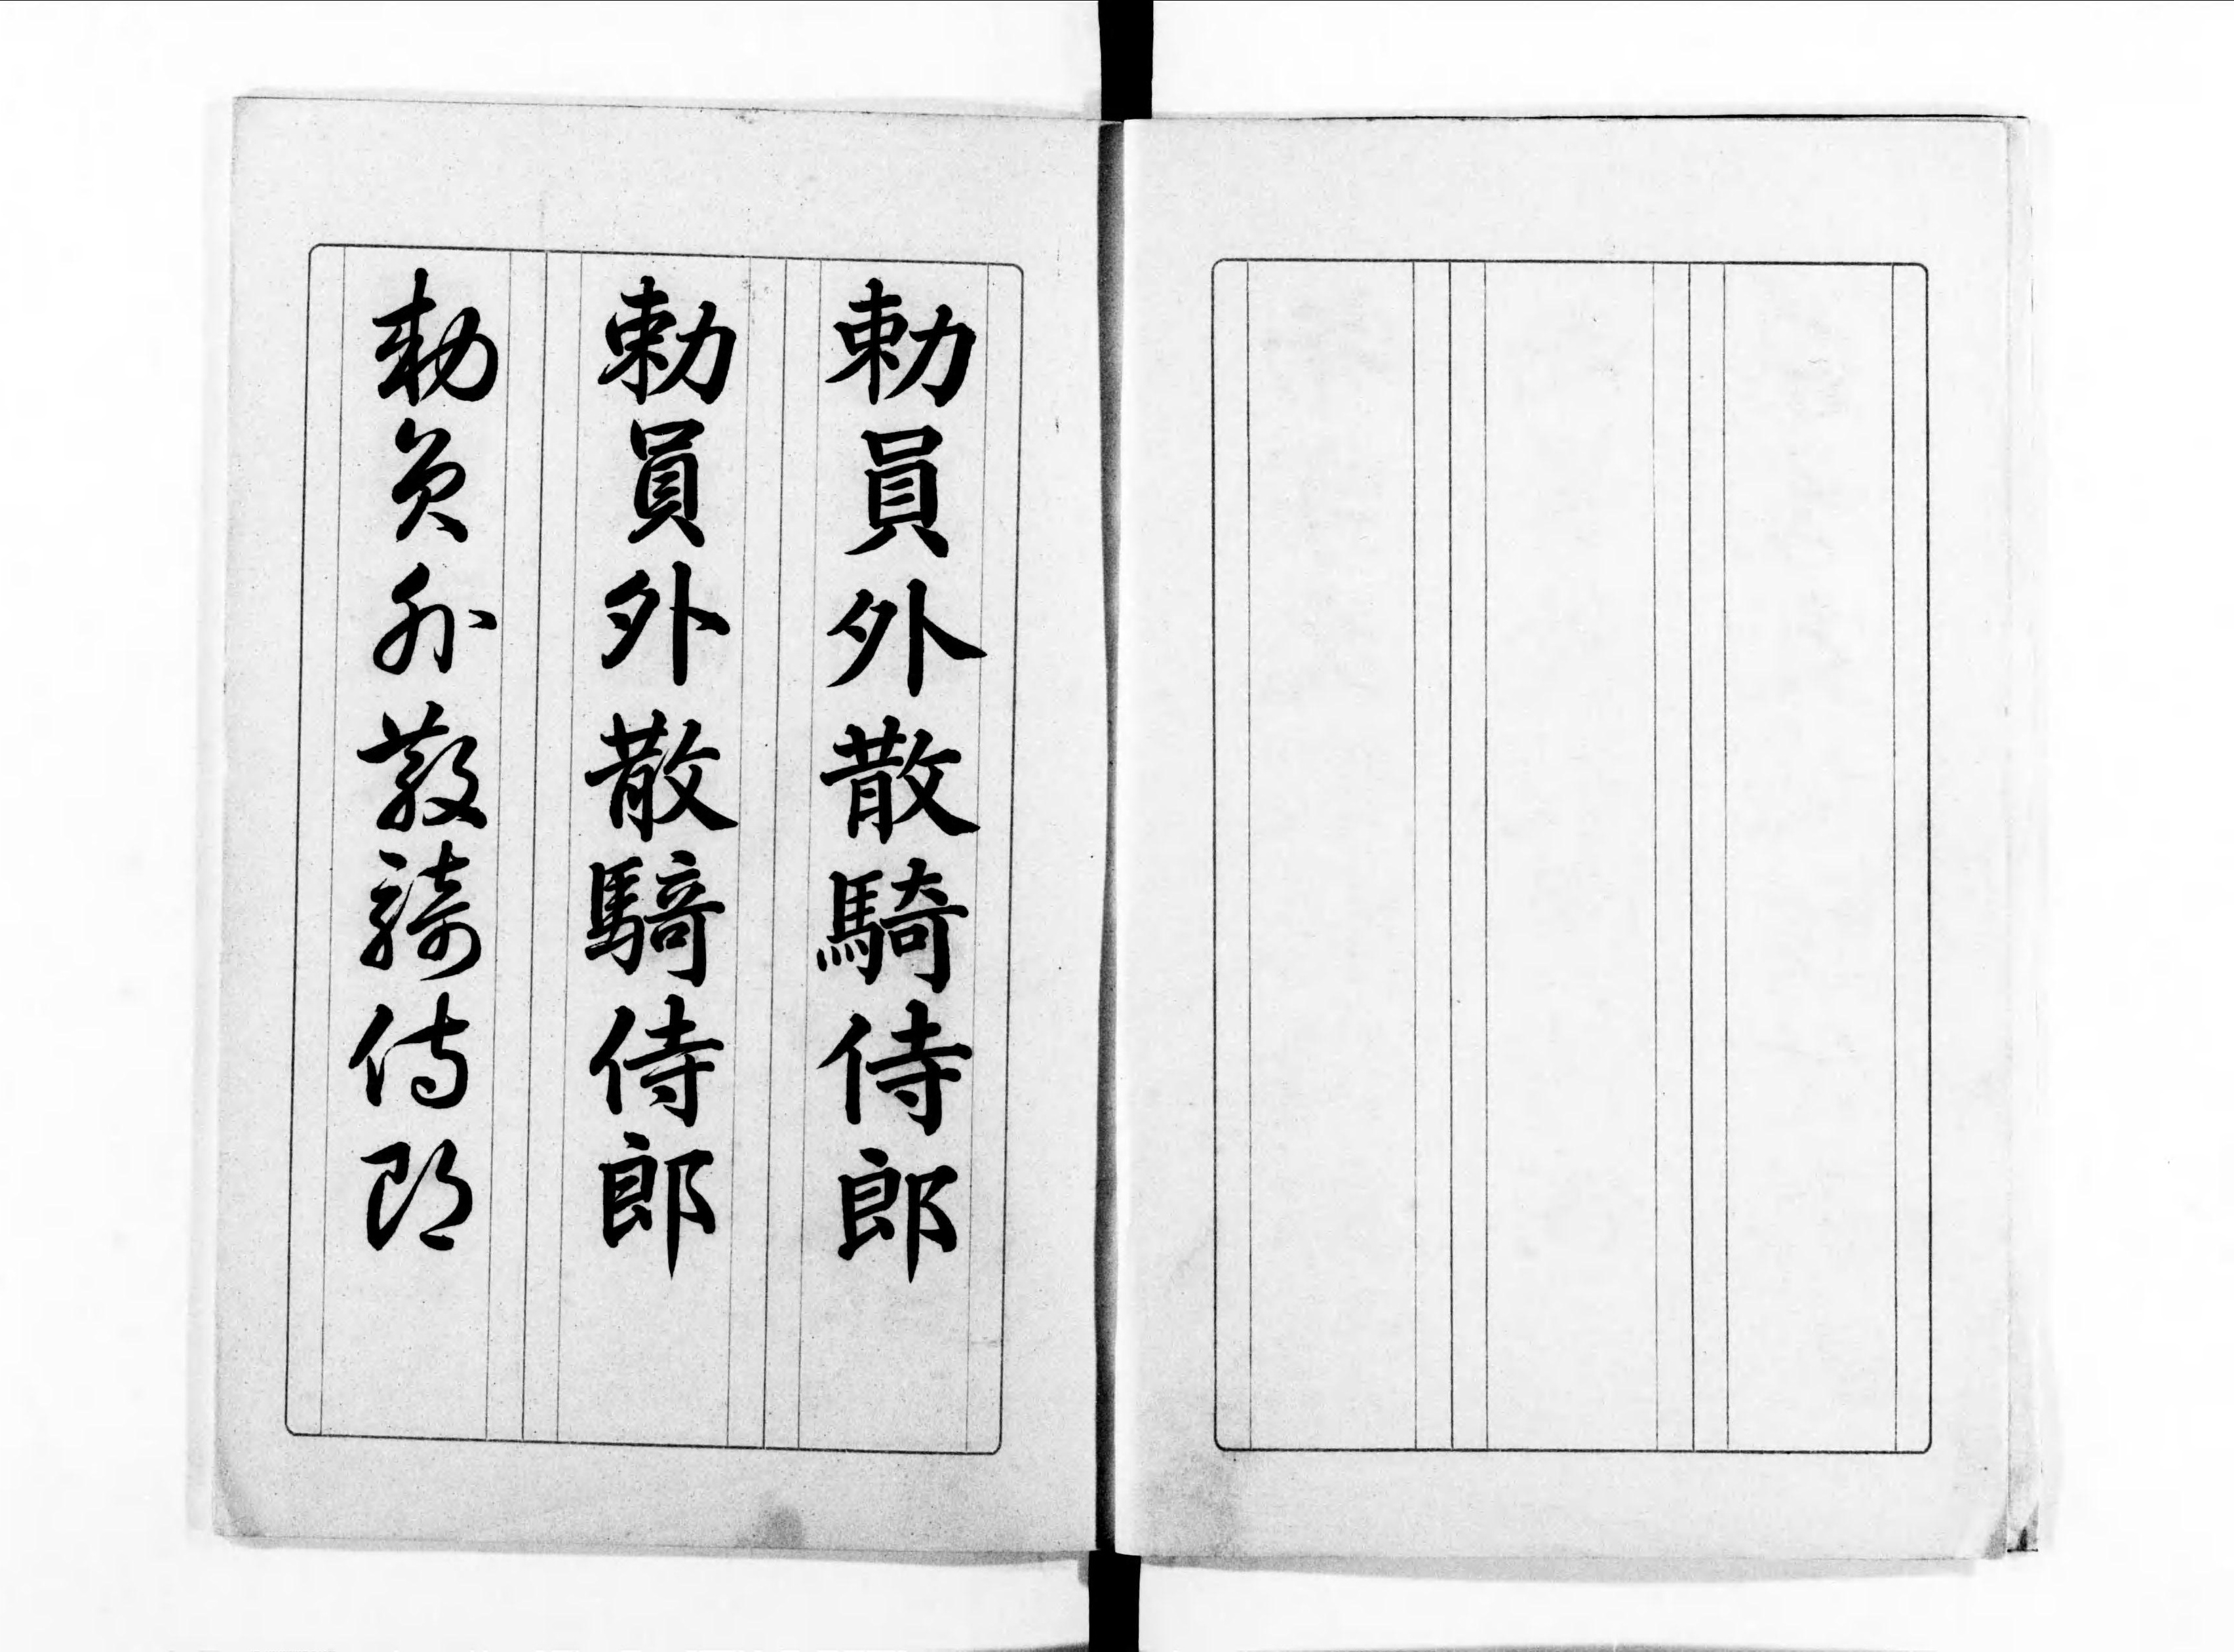 勅員外散騎侍郎
勅員外散騎侍郎
勅員外散騎侍郎